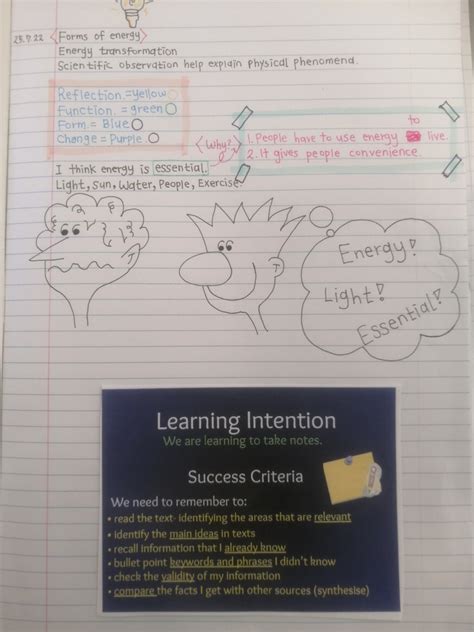 25.7.22 <Forms of energy>
Energy transformation
Scientific observation help explain physical phenomend.
Reflection.=yellow
Function.=green
Form.= Blue
Change= Purple
<Why?>
to
1. People have to use energy live.
2. It gives people convenience.
I think energy is essential.
Light, Sun, Water, People, Exercise.
Energy!
Light!
Essential!
Learning Intention
We are learning to take notes.
Success Criteria
We need to remember to:
• read the text- identifying the areas that are relevant
• identify the main ideas in texts
• recall information that I already know
• bullet point keywords and phrases I didn't know
• check the validity of my information
• compare the facts I get with other sources (synthesise)